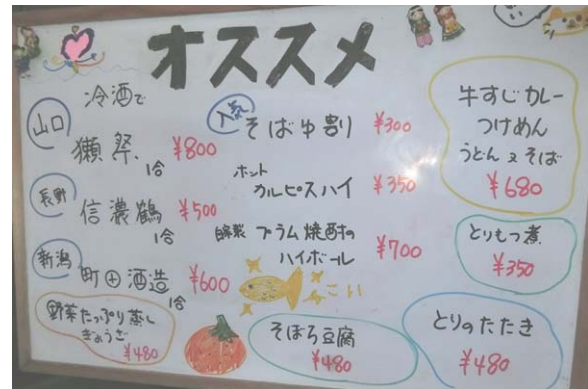 オススメ
冷酒で
山口
獺祭
1合
¥800
長野
信濃鶴
1合
¥500
新潟
町田酒造
1合
¥600
野菜たっぷり蒸し
ぎょうざ
¥480
人気
そばゆ割り
¥300
ホット
カルピスハイ
¥350
自家製 プラム焼酎の
ハイボール
¥700
そぼろ豆腐
¥480
牛すじカレー
つけめん
うどん又そば
¥680
とりもつ煮
¥350
とりのたたき
¥480